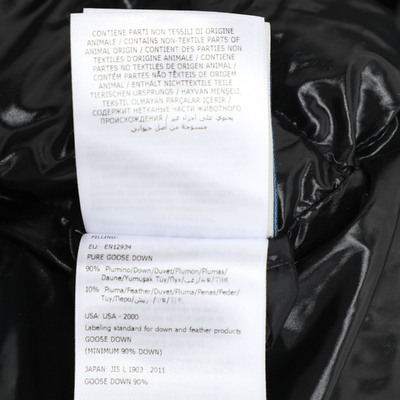 CONTIENE PARTI NON TESSILI DI ORIGINE
ANIMALE / CONTAINS NON-TEXTILE PARTS OF
ANIMAL ORIGIN / CONTIENT DES PARTIES NON
TEXTILES D'ORIGINE ANIMALE / CONTIENE
PARTES NO TEXTILES DE ORIGEN ANIMAL /
CONTÉM PARTES NÃO TÊXTEIS DE ORIGEM
ANIMAL / ENTHÄLT NICHTTEXTILE TEILE
TIERISCHEN URSPRUNGS / HAYVAN MENŞELİ,
TEKSTİL OLMAYAN PARÇALAR İÇERİR /
СОДЕРЖИТ НЕТКАНЫЕ ЧАСТИ ЖИВОТНОГО
ПРОИСХОЖДЕНИЯ / يحتوي على أجزاء غير
منسوجة من أصل حيواني
FILLING:
EU: EN12934
PURE GOOSE DOWN
90% Piumino/Down/Duvet/Plumón/Plumas/
Daune/Yumuşak Tüy/Пух/
10% Piuma/Feather/Duvet/Pluma/Penas/Feder/
Tüy/Перо/
USA: USA - 2000
Labeling standard for down and feather products
GOOSE DOWN
(MINIMUM 90% DOWN)
JAPAN: JIS L 1903 : 2011
GOOSE DOWN 90%